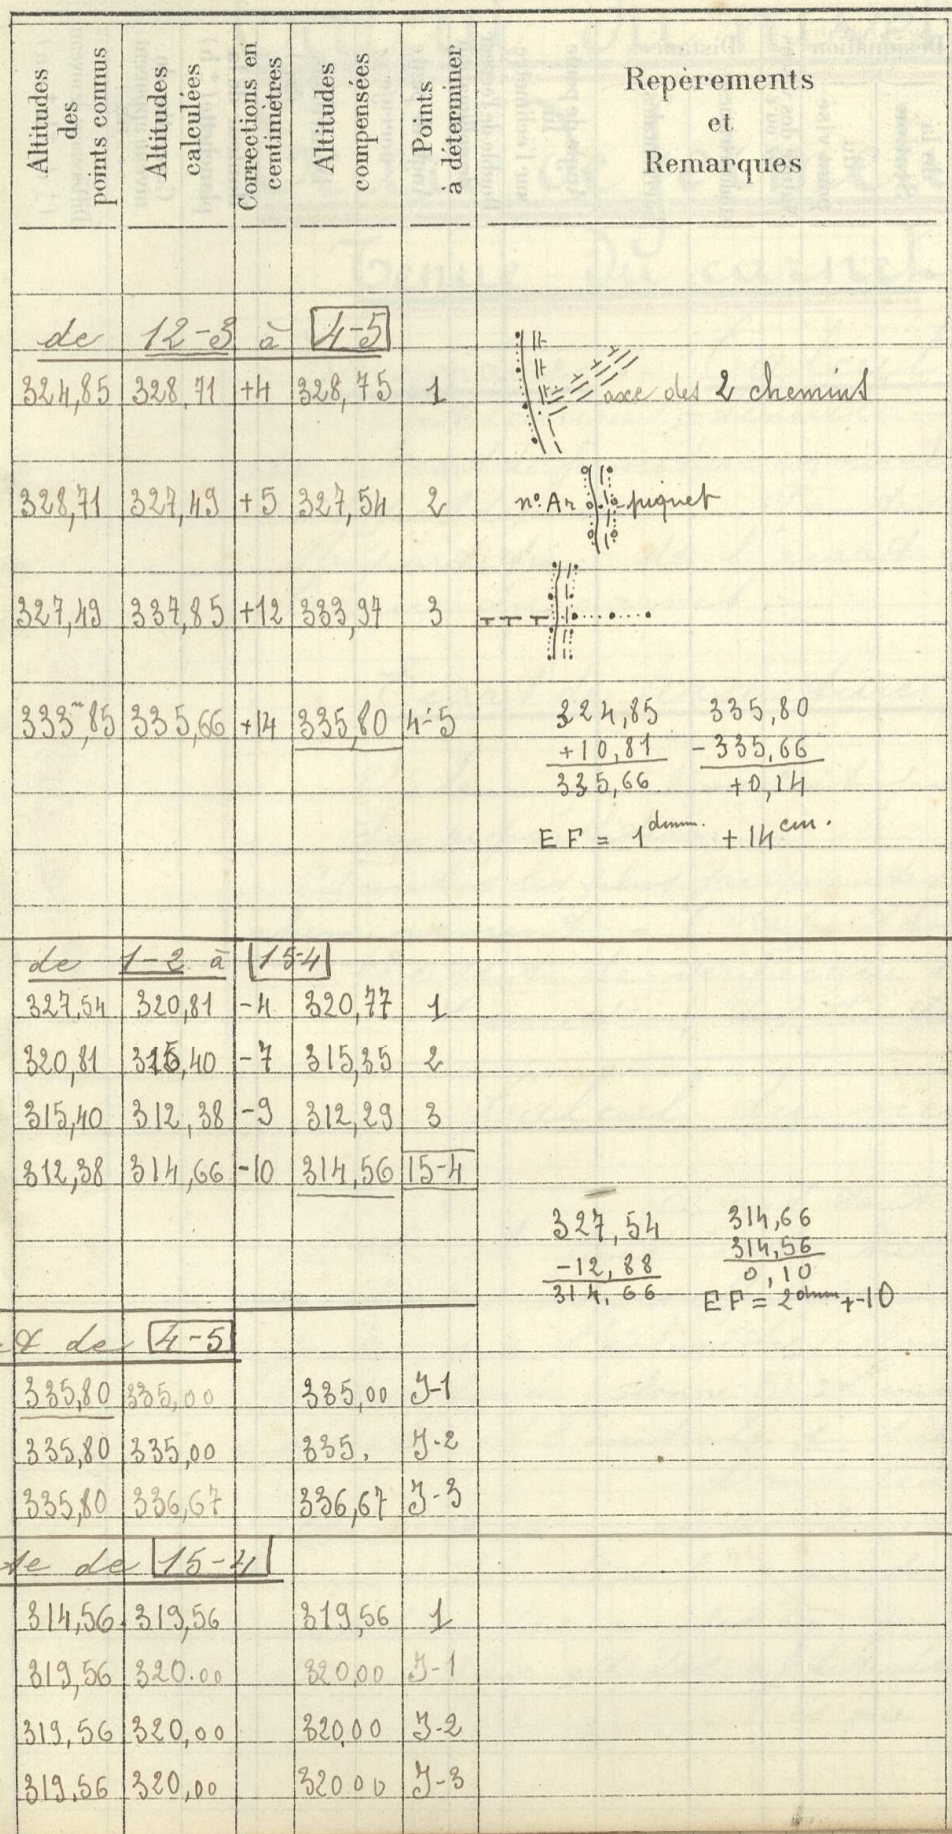 Altitudes des points connus | Altitudes calculées | Corrections en centimètres | Altitudes compensées | Points à déterminer | Repèrements et Remarques
de 12-3 à 4-5
324,85 | 328,71 | +4 | 328,75 | 1 | axe des 2 chemins
328,71 | 327,49 | +5 | 327,54 | 2 | n: An piquet
327,49 | 337,85 | +12 | 333,97 | 3
333,85 | 335,66 | +14 | 335,80 | 4-5
324,85 335,80
+10,81 -335,66
335,66 +0,14
EF = 1 dmm. + 14 cm.
de 1-2 à 15-4
327,54 | 320,81 | -4 | 320,77 | 1
320,81 | 315,40 | -7 | 315,35 | 2
315,40 | 312,38 | -9 | 312,29 | 3
312,38 | 314,66 | -10 | 314,56 | 15-4
327,54 314,66
-12,88 314,56
314,66 0,10
EF = 2 dmm +-10
de 4-5
335,80 | 335,00 | 335,00 | J-1
335,80 | 335,00 | 335, | J-2
335,80 | 336,67 | 336,67 | J-3
de 15-4
314,56 | 319,56 | 319,56 | 1
319,56 | 320.00 | 320,00 | J-1
319,56 | 320,00 | 320,00 | J-2
319,56 | 320,00 | 320 00 | J-3